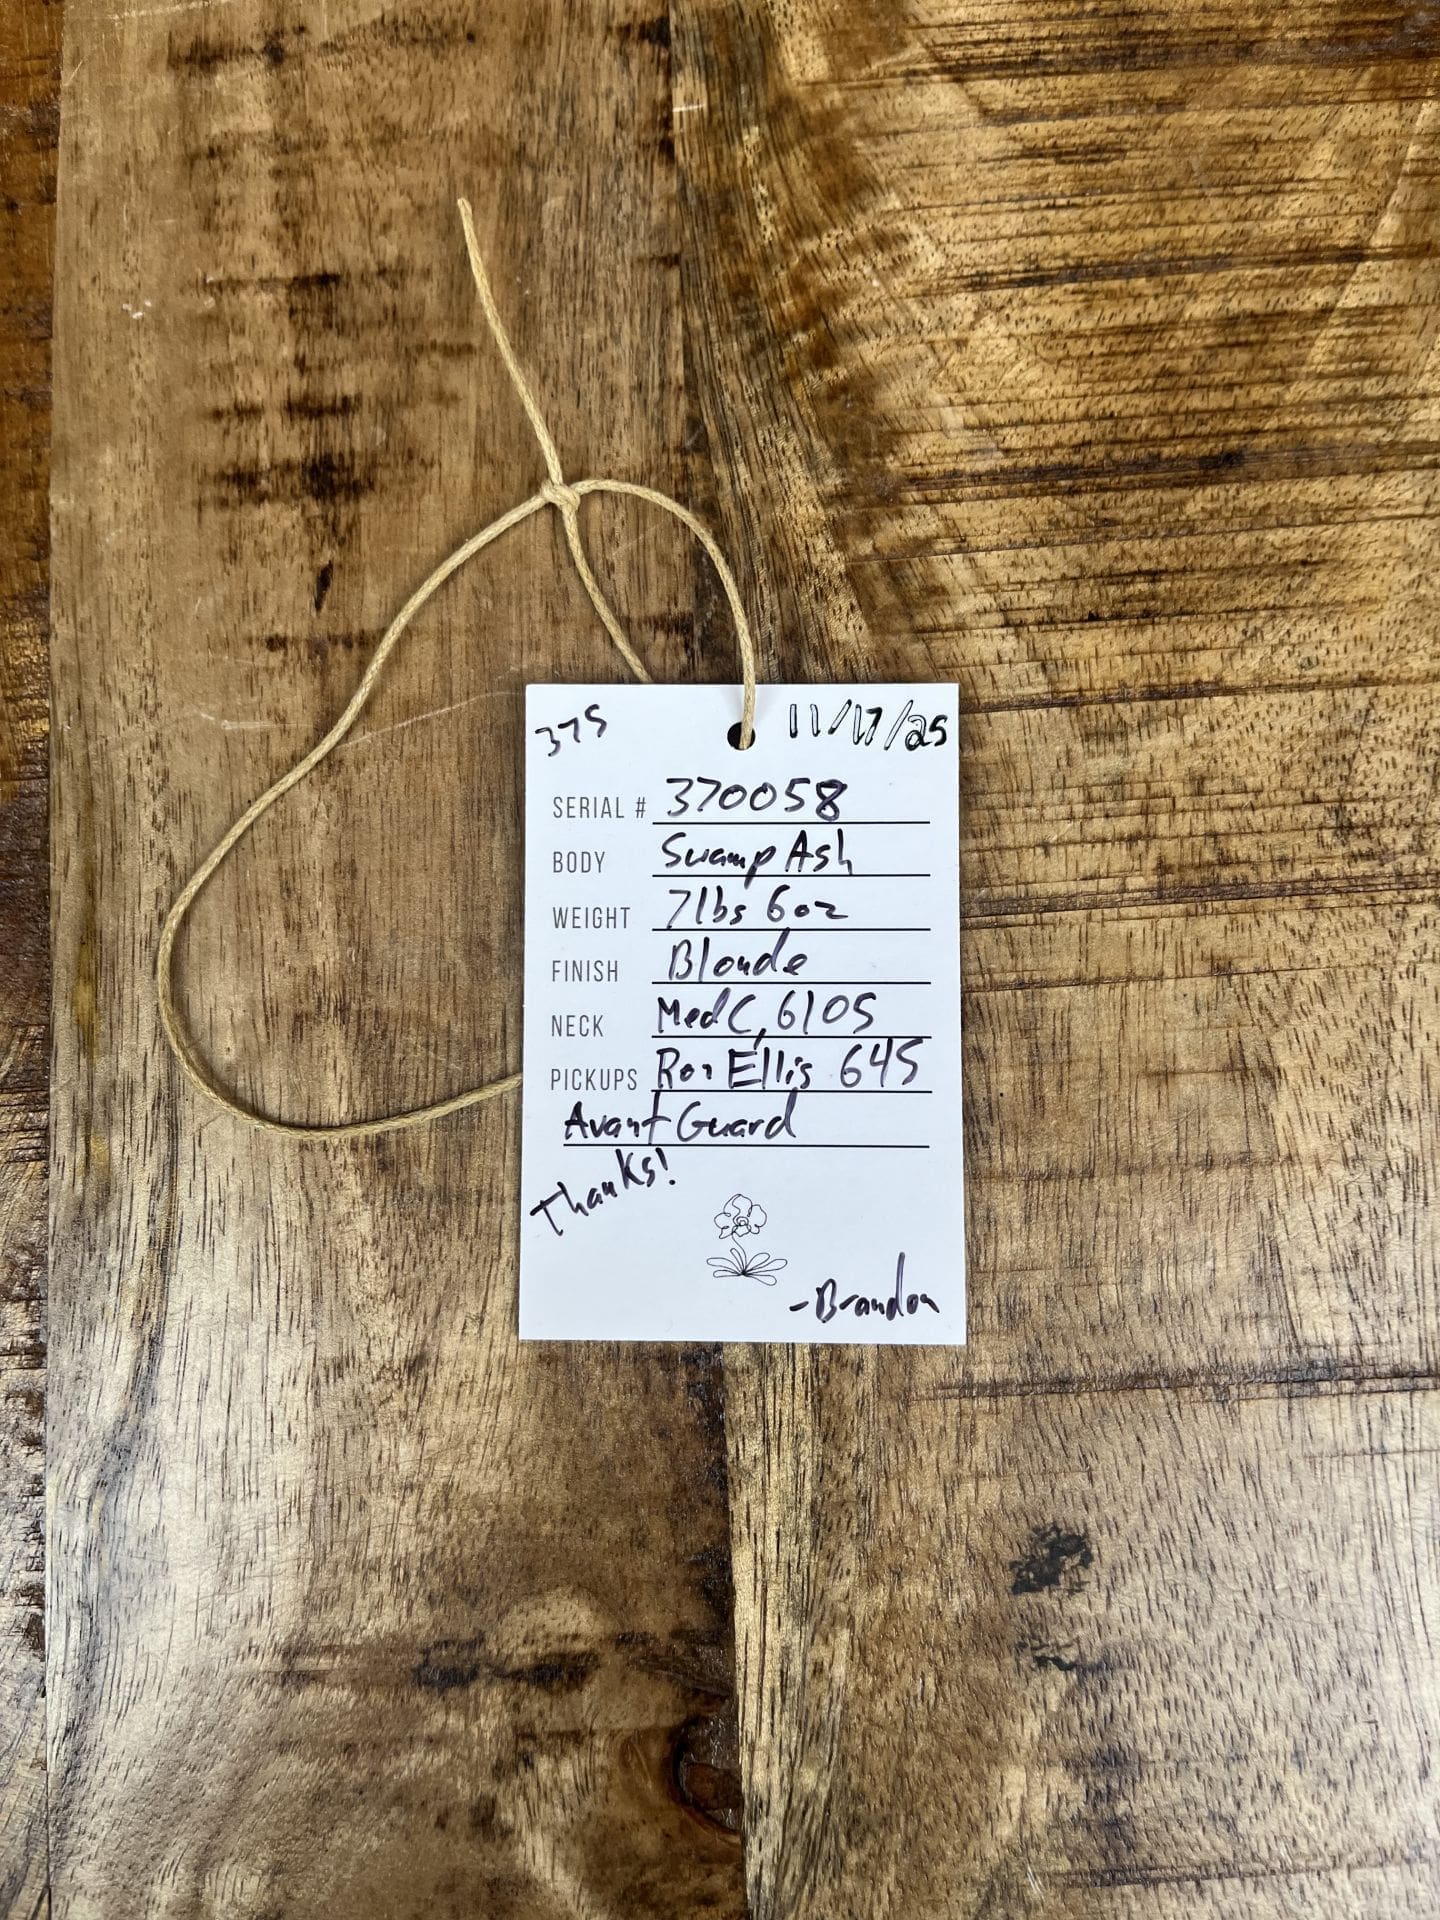 375
11/17/25
SERIAL # 370058
BODY Swamp Ash
WEIGHT 7lbs 6oz
FINISH Blonde
NECK Med C, 6105
PICKUPS Ron Ellis 64S
Avant Guard
Thanks!
-Brandon